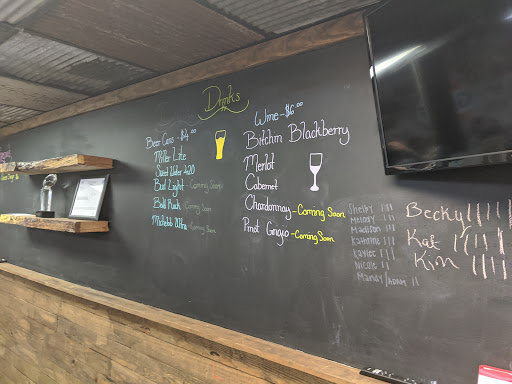 Drinks
Beer Cans - $4.00
Miller Lite
Sweet Water 420
Bud Light - Coming Soon
Bold Rock - Coming Soon
Michelob Ultra - Coming Soon
Wine - $6.00
Bitchin Blackberry
Merlot
Cabernet
Chardonnay - Coming Soon
Pinot Grigio - Coming Soon
Shelby III
Melody III
Madison
Katherine III
Kaylee III
Nicole III
Mandy/Adam II
Becky
Kat
Kim